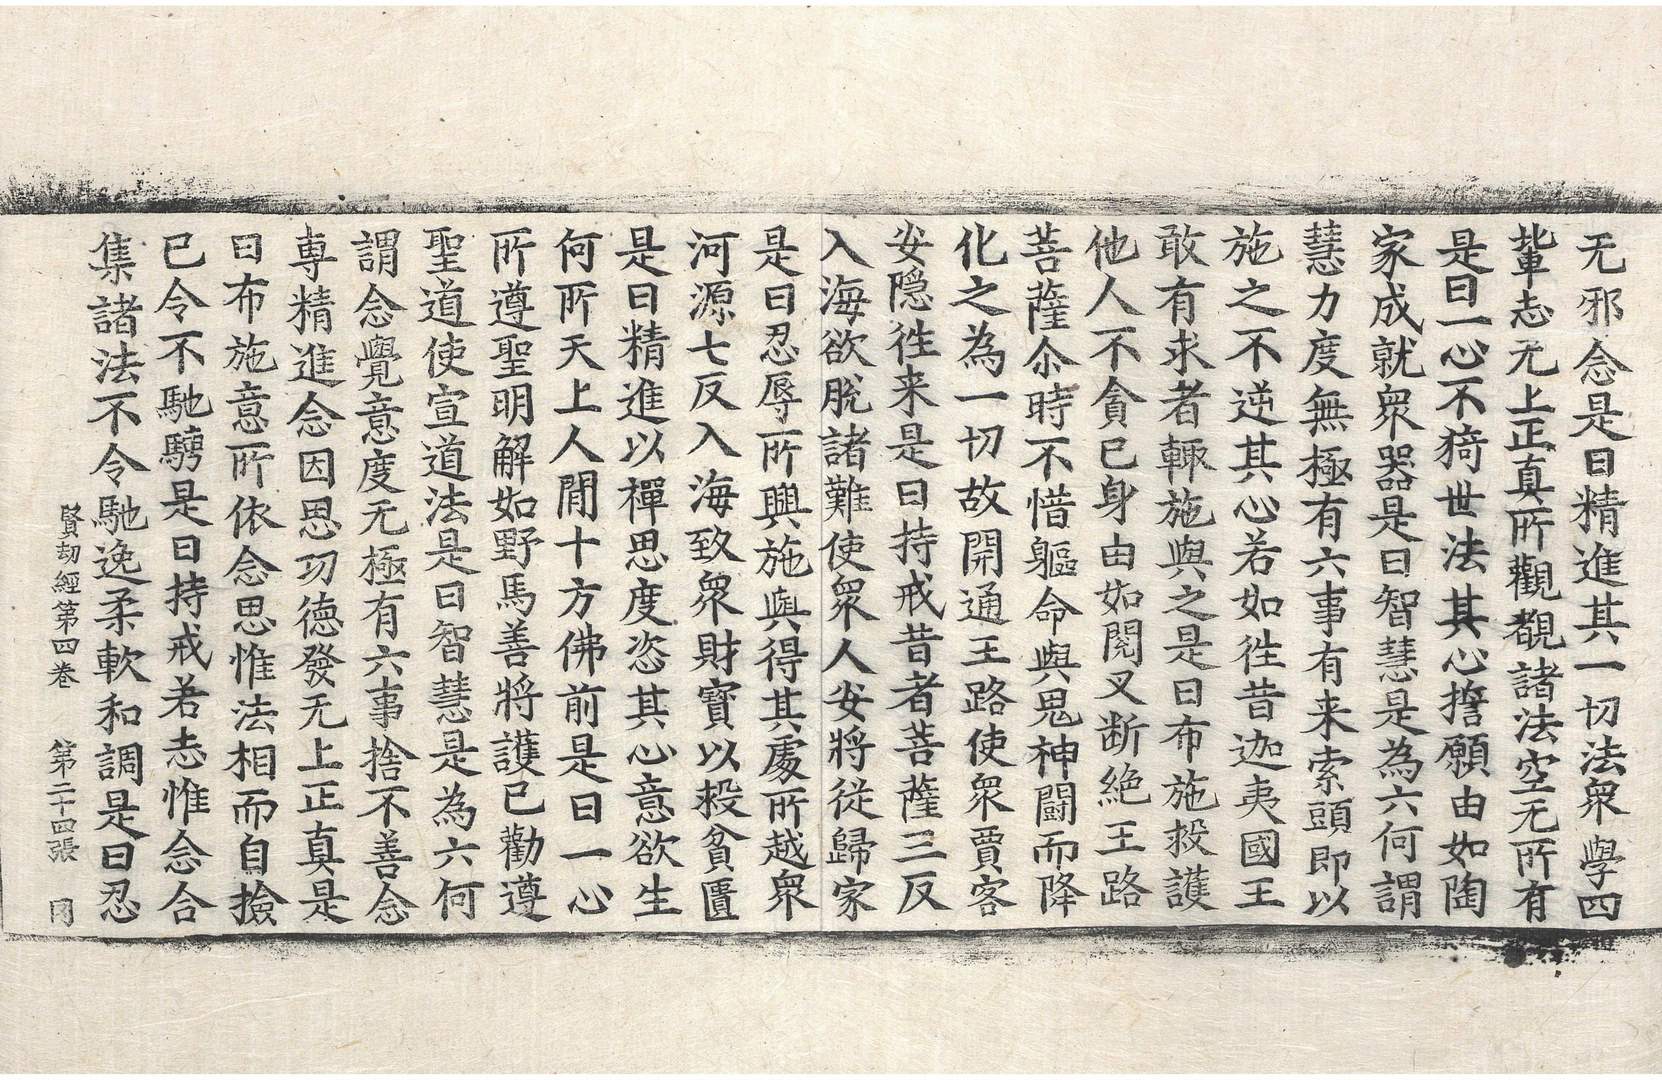 无邪念是曰精進其一切法衆學四
輩志无上正真所觀覩諸法空无所有
是曰一心不猗世法其心擔願由如陶
家成就衆器是曰智慧是為六何謂
慧力度無極有六事有来索頭即以
施之不逆其心若如徃昔迦夷國王
敢有求者輙施與之是曰布施投護
他人不貪已身由如閱叉断絶王路
菩薩尒時不惜軀命與鬼神鬪而降
化之為一切故開通王路使衆賈客
安隐徃来是曰持戒昔者菩薩三反
入海欲脫諸難使衆人安將從歸家
是曰忍辱所興施與得其處所越衆
河源七反入海致衆財寶以投貧匱
是曰精進以禪思度恣其心意欲生
何所天上人間十方佛前是曰一心
所遵聖明解如野馬善將護已勸遵
聖道使宣道法是曰智慧是為六何
謂念覺意度无極有六事捨不善念
専精進念因思功德發无上正真是
曰布施意所依念思惟法相而自撿
已令不馳騁是曰持戒若志惟念合
集諸法不令馳逸柔軟和調是曰忍
賢劫經第四卷　第二十四張　罔